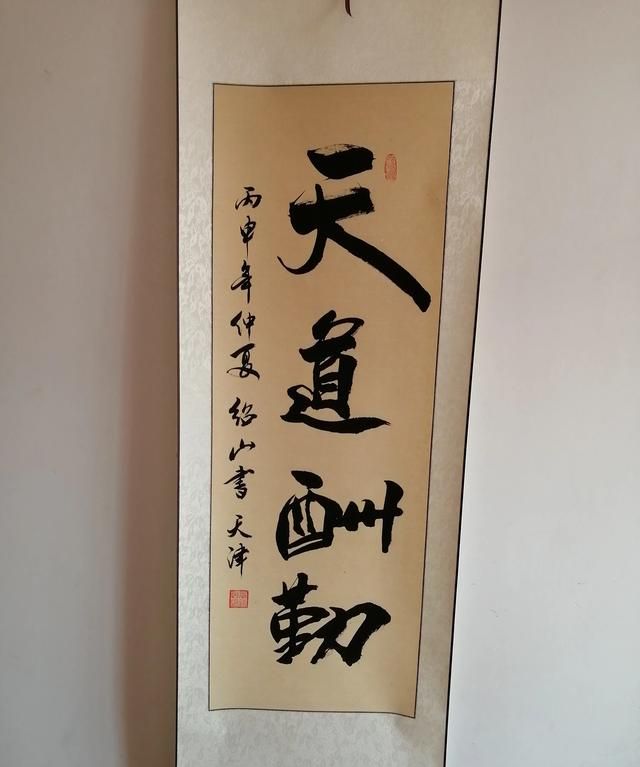 天道酬勤
丙申年仲夏绍山书天津